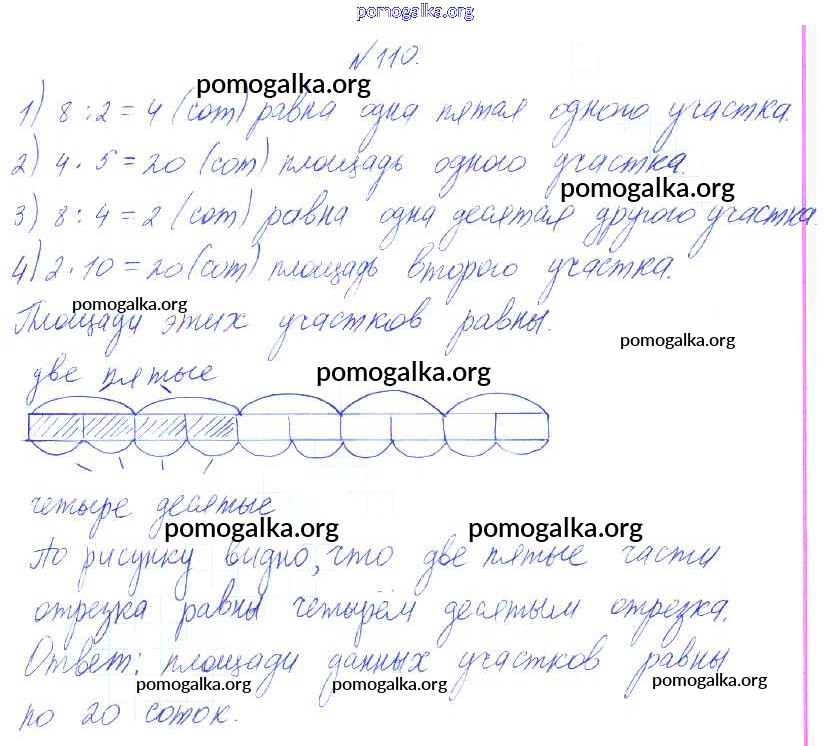 pomogalka.org
№110.
pomogalka.org
1) 8 : 2 = 4 (сот) равна одна пятая одного участка.
2) 4 · 5 = 20 (сот) площадь одного участка.
pomogalka.org
3) 8 : 4 = 2 (сот) равна одна десятая другого участка.
4) 2 · 10 = 20 (сот) площадь второго участка.
pomogalka.org
Площади этих участков равны.
pomogalka.org
две пятые
pomogalka.org
четыре десятые
pomogalka.org pomogalka.org
По рисунку видно, что две пятые части
отрезка равны четырём десятым отрезка.
Ответ: площади данных участков равны
pomogalka.org pomogalka.org pomogalka.org
по 20 соток.